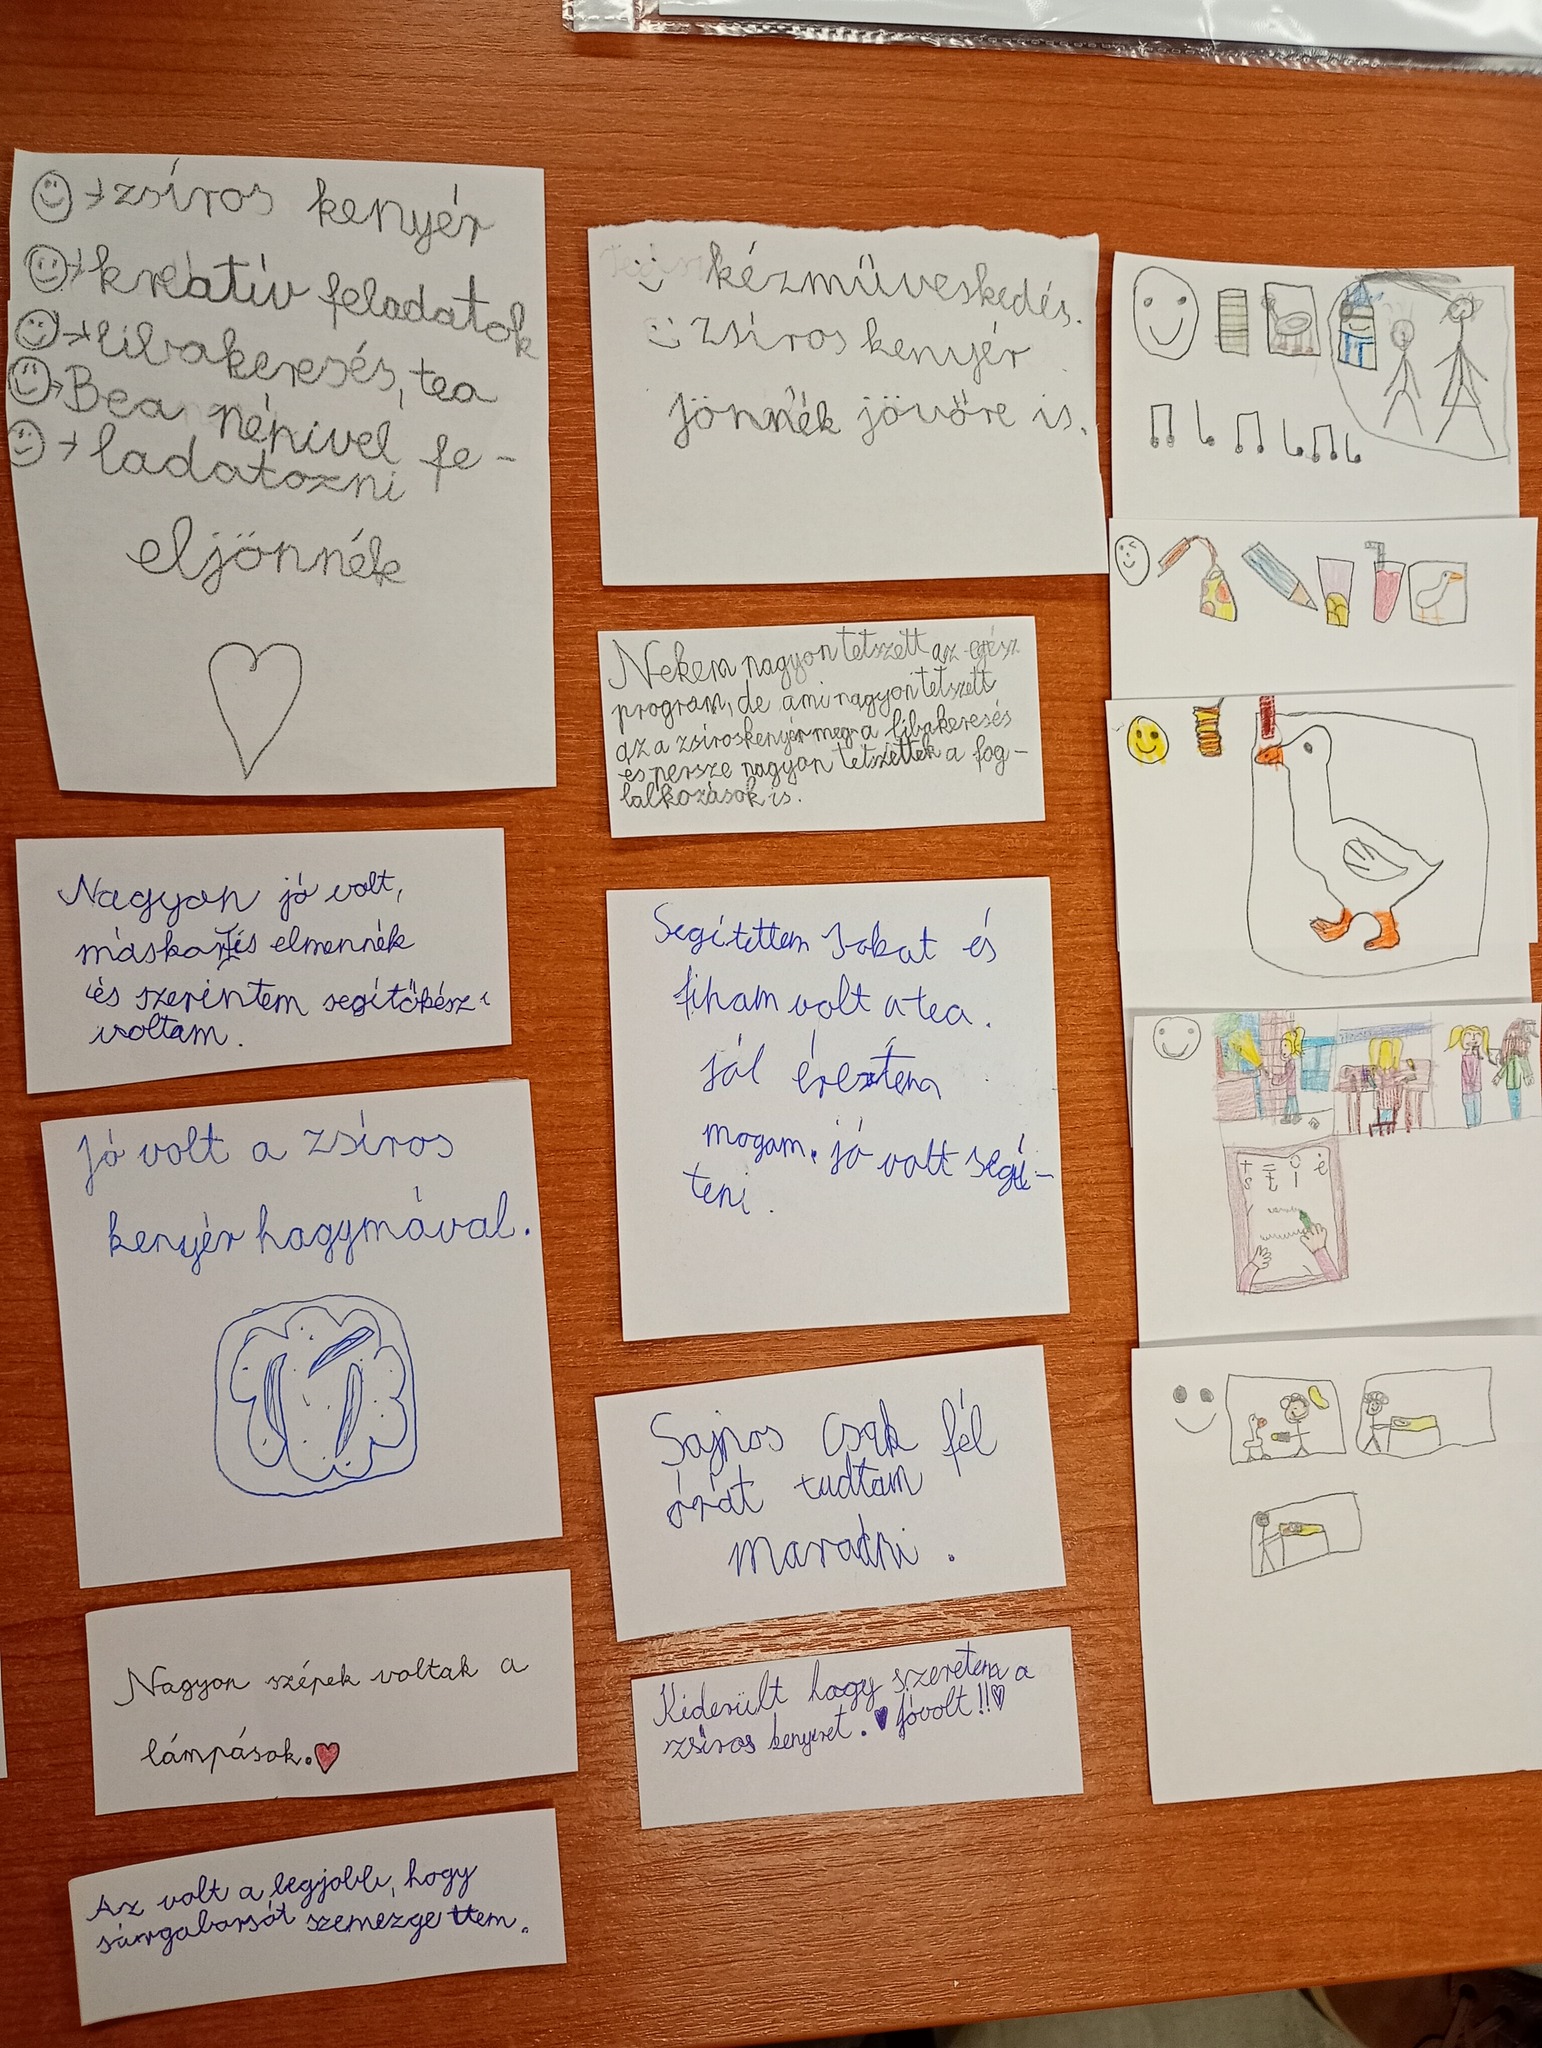 zsíros kenyér
kreatív feladatok
libakeresés, tea
Bea nénivel fe-
ladatozni
eljönnék
Nagyon jó volt,
máskor is elmennék
és szerintem segítőkész
voltam.
Jó volt a zsíros
kenyér hagymával.
Nagyon szépek voltak a
lámpások.
Az volt a legjobb, hogy
sárgaborsót szemezgettem.
kézműveskedés.
zsíros kenyér
jönnék jövőre is.
Nekem nagyon tetszett az egész
program, de ami nagyon tetszett
az a zsíroskenyér meg a libakeresés
és persze nagyon tetszettek a fog-
lalkozások is.
Segítettem sokat és
fiham volt a tea.
jól éreztem
mogam. jó volt segí-
teni.
Sajnos csak fél
órát tudtam
maradni.
Kiderült hogy szeretem a
zsíros kenyeret. Jóvolt!!